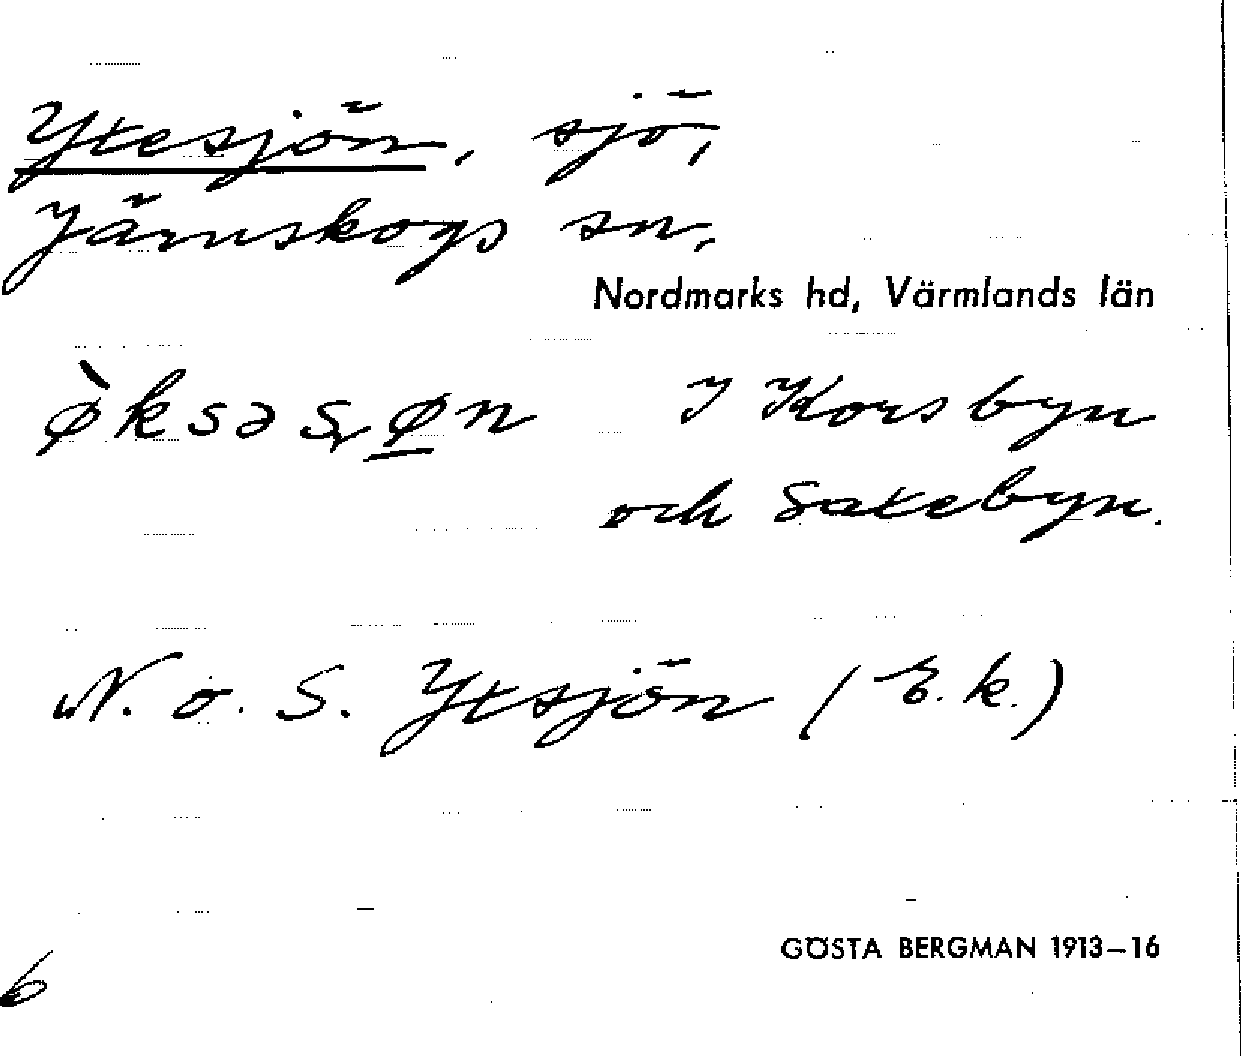 Ytesjön, sjö,
Järnskogs sn,
Nordmarks hd, Värmlands län
ø̀ksəsø̲n I Korsbyn
och Satebyn.
N. o. S. Ytsjön (E.k.)
GÖSTA BERGMAN 1913–16
6